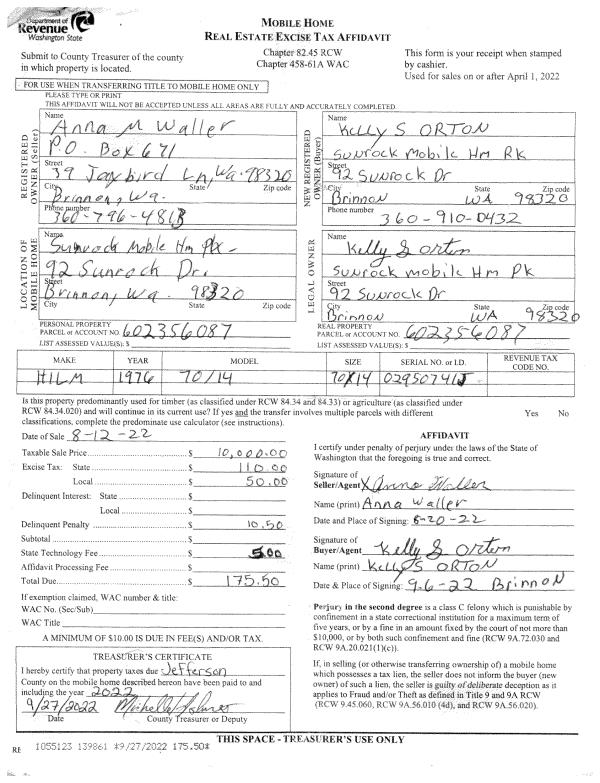 Department of
Revenue
Washington State
MOBILE HOME
REAL ESTATE EXCISE TAX AFFIDAVIT
Submit to County Treasurer of the county
in which property is located.
Chapter 82.45 RCW
Chapter 458-61A WAC
This form is your receipt when stamped
by cashier.
Used for sales on or after April 1, 2022
FOR USE WHEN TRANSFERRING TITLE TO MOBILE HOME ONLY
PLEASE TYPE OR PRINT
THIS AFFIDAVIT WILL NOT BE ACCEPTED UNLESS ALL AREAS ARE FULLY AND ACCURATELY COMPLETED.
REGISTERED
OWNER (Seller)
Name
Anna M Waller
P.O. Box 671
Street
39 Jaybird Ln, Wa. 98320
City State Zip code
Brinnon, Wa.
Phone number
360-796-4813
NEW REGISTERED
OWNER (Buyer)
Name
Kelly S ORTON
SUNROCK MOBILE Hm RK
Street
92 SUNROCK Dr
City State Zip code
Brinnon WA 98320
Phone number
360-910-0432
LOCATION OF
MOBILE HOME
Name
Sunrock Mobile Hm Pk -
92 Sunrock Dr.
Street
Brinnon, Wa. 98320
City State Zip code
LEGAL OWNER
Name
Kelly S Orton
SUNROCK mobile Hm Pk
Street
92 SUNROCK Dr
City State Zip code
Brinnon WA 98320
PERSONAL PROPERTY
PARCEL or ACCOUNT NO. 602356087
LIST ASSESSED VALUE(S): $
REAL PROPERTY
PARCEL or ACCOUNT NO. 602356087
LIST ASSESSED VALUE(S): $
MAKE YEAR MODEL SIZE SERIAL NO. or I.D. REVENUE TAX CODE NO.
HILM 1976 70/14 70X14 02950741J
Is this property predominantly used for timber (as classified under RCW 84.34 and 84.33) or agriculture (as classified under
RCW 84.34.020) and will continue in its current use? If yes and the transfer involves multiple parcels with different
classifications, complete the predominate use calculator (see instructions). Yes No
Date of Sale 8-12-22
Taxable Sale Price $ 10,000.00
Excise Tax: State $ 110.00
Local $ 50.00
Delinquent Interest: State $
Local $
Delinquent Penalty $ 10.50
Subtotal $
State Technology Fee $ 5.00
Affidavit Processing Fee $
Total Due $ 175.50
If exemption claimed, WAC number & title:
WAC No. (Sec/Sub)
WAC Title
A MINIMUM OF $10.00 IS DUE IN FEE(S) AND/OR TAX.
AFFIDAVIT
I certify under penalty of perjury under the laws of the State of
Washington that the foregoing is true and correct.
Signature of
Seller/Agent X Anna Waller
Name (print) Anna Waller
Date and Place of Signing: 8-20-22
Signature of
Buyer/Agent Kelly S Orton
Name (print) Kelly S ORTON
Date & Place of Signing: 9-6-22 Brinnon
Perjury in the second degree is a class C felony which is punishable by
confinement in a state correctional institution for a maximum term of
five years, or by a fine in an amount fixed by the court of not more than
$10,000, or by both such confinement and fine (RCW 9A.72.030 and
RCW 9A.20.021(1)(c)).
If, in selling (or otherwise transferring ownership of) a mobile home
which possesses a tax lien, the seller does not inform the buyer (new
owner) of such a lien, the seller is guilty of deliberate deception as it
applies to Fraud and/or Theft as defined in Title 9 and 9A RCW
(RCW 9.45.060, RCW 9A.56.010 (4d), and RCW 9A.56.020).
TREASURER'S CERTIFICATE
I hereby certify that property taxes due Jefferson
County on the mobile home described hereon have been paid to and
including the year 2022
9/27/2022
Date County Treasurer or Deputy
THIS SPACE - TREASURER'S USE ONLY
1055123 139861 *9/27/2022 175.50*